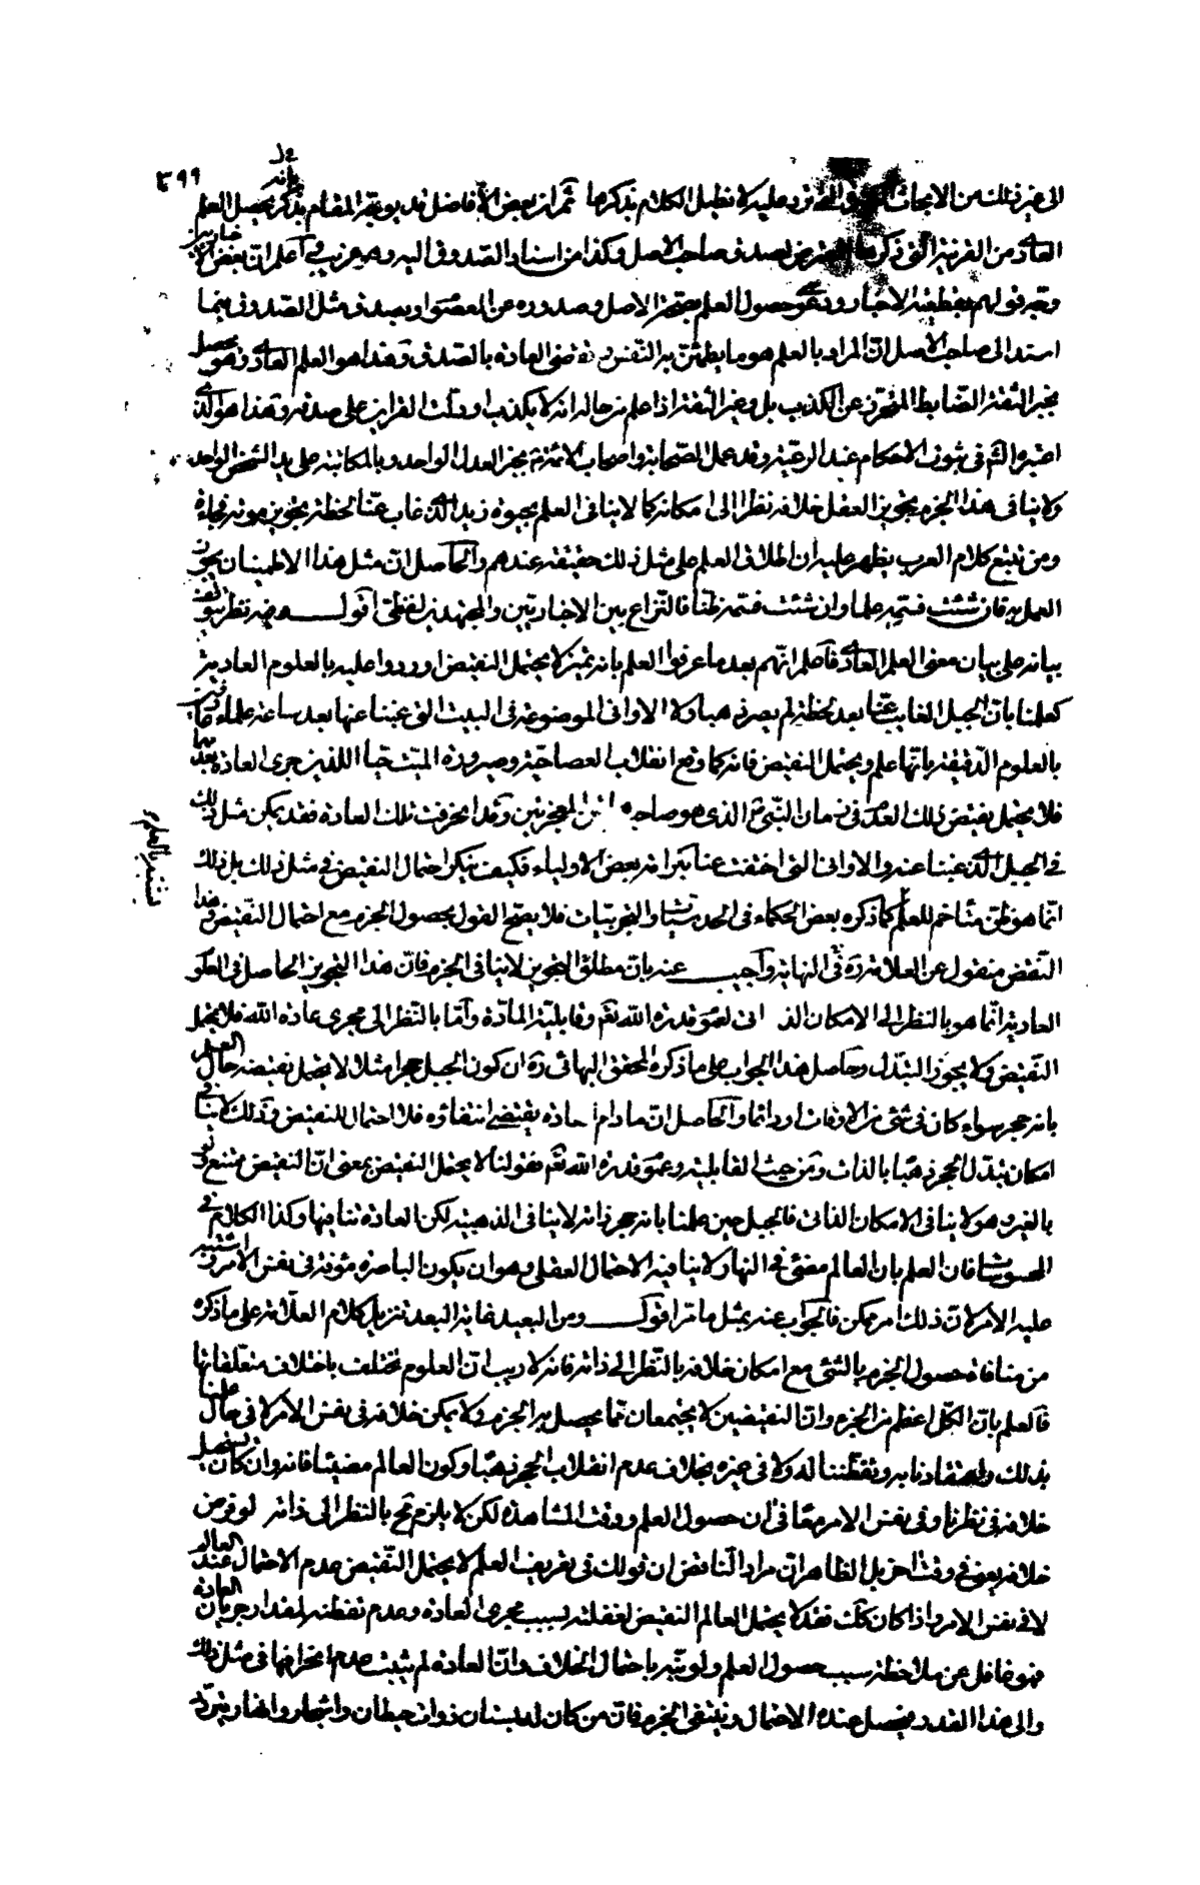 ٤٩٩
الى غير ذلك من الابحاث التى ترد عليه لا نطيل الكلام بذكرها ثم ان بعض الأفاضل بذكر يحصل العلم
العادى من القرينة التى ذكرها بصدق صاحب الاصل وكذا من اسناد الصدوق اليه وهو غريب اعلم ان بعض الاخباريين
وجه قولهم بقطعية الاخبار ودعوى حصول العلم بصحة الاصل وصدوره عن المعصوم وبصدق مثل الصدوق فيما
اسند الى صاحب الاصل ان المراد بالعلم هو ما يطمئن به النفس وتقضى العادة بالصدق وهذا هو العلم العادى وهو يحصل
بخبر الثقة الضابط المتحرز عن الكذب بل وغير الثقة اذا علم من حاله انه لا يكذب او دلت القراين على صدقه وهذا هو الذى
اعتبره الشم فى ثبوت الاحكام عند الرعية وقد عمل الصحابة واصحاب الائمة بخبر العدل الواحد وبالمكاتبة على يد الشخص الواحد
ولا ينافى هذا الجزم تجويز العقل خلافه نظرا الى امكانه كما لا ينافى العلم بحيوة زيد الذى غاب عنا لحظة تجويز موته فجاءة
ومن تتبع كلام العرب يظهر عليه ان اطلاق العلم على مثل ذلك حقيقة عندهم والحاصل ان مثل هذا الاطمينان يجوز
العمل به فان شئت فسمه علما وان شئت فسمه ظنا فالنزاع بين الاخباريين والمجتهدين لفظى اقول وفيه نظر يتوقف
بيانه على بيان معنى العلم العادى فاعلم انهم بعد ما عرفوا العلم بانه تميز لا يحتمل النقيض اوردوا عليه بالعلوم العادية
كعلمنا بان الجبل الغايب عنا بعد لحظة لم يصر ذهبا وكذا الاوانى الموضوعة فى البيت التى غبنا عنها بعد ساعة علماء
بالعلوم الدقيقة بانها علم ويحتمل النقيض فانه كما وقع انقلاب العصا حية وصيرورة الميت حيا اللذين جرى العادة بعدمهما
فلا يحتمل نقيض ذلك العدم فى زمان النبى ع الذى هو صاحب المعجزتين وقد انخرقت تلك العادة فقد يمكن مثل ذلك
فى الجبل الذى غبنا عنه والاوانى التى اختفت عنا بكرامة بعض الاولياء فكيف ينكر احتمال النقيض فى مثل ذلك بل ذلك
انما هو ظن متاخم للعلم كما ذكره بعض الحكماء فى الحدسيات والتجربيات فلا يصح القول بحصول الجزم مع احتمال النقيض وهذا
النقض منقول عن العلامة ره فى النهاية واجيب عنه بان مطلق التجويز لا ينافى الجزم فان هذا التجويز الحاصل فى العلوم
العادية انما هو بالنظر الى الامكان الذاتى لعموم قدرة الله تعم وقابلية المادة واما بالنظر الى مجرى عادة الله فلا يحتمل
النقيض ولا يجوز التبدل وحاصل هذا الجواب على ما ذكره المحقق البهائى ره ان كون الجبل حجرا مثلا لا يحتمل نقيضه حال العلم
بانه حجر سواء كان فى شئ من الاوقات او دائما والحاصل ان ما دام عادة يقتضى انتفاؤه فلا احتمال للنقيض وذلك لا ينافى
امكان تبدل الحجر ذهبا بالذات ومن حيث القابلية وعموم قدرة الله تعم فقولنا لا يحتمل النقيض بمعنى ان النقيض ممتنع
بالغير وهو لا ينافى الامكان الذاتى فالجبل حين علمنا بانه حجر ذاته لا ينافى الذهبية لكن العادة تنافيها وكذا الكلام فى
المحسوسات فان العلم بان العالم مضئ فى النهار لا ينافيه الاحتمال العقلى وهو ان يكون الباصرة مؤفة فى نفس الامر واشتبه
عليه الامر لان ذلك امر ممكن فالجواب عنه بمثل ما مر اقول ومن البعيد غاية البعد تنزيل كلام العلامة على ما ذكره
من منافاة حصول الجزم بالشئ مع امكان خلافه بالنظر الى ذاته فانه لا ريب ان العلوم تختلف باختلاف متعلقاتها
فالعلم بان الكل اعظم من الجزء وان النقيضين لا يجتمعان مما يحصل به الجزم ولا يمكن خلافه فى نفس الامر لا فى حال علمنا
بذلك واعتقادنا به وتفطننا له ولا فى غيره بخلاف عدم انقلاب الحجر ذهبا وكون العالم مضيئا فانه وان كان يستحيل
خلافه فى نظرنا وفى نفس الامر معا فى ان حصول العلم ووقت المشاهدة لكن لا يلزم مح بالنظر الى ذاته لو فرض
خلافه يعنى فى وقت اخر بل الظاهر ان مراد الناقض ان قولك فى تعريف العلم لا يحتمل النقيض عدم الاحتمال عند العالم
لا فى نفس الامر واذا كان كك فقد لا يحتمل العالم النقيض لغفلته بسبب مجرى العادة وعدم تفطنه لمقدار جريان العادة
فهو غافل عن ملاحظة سبب حصول العلم ولو تنبه باحتمال الخلاف وان العادة لم يثبت عدم انخرافها فى مثل ذلك
والى هذا القدر يحصل عنده الاحتمال وينتفى الجزم فان من كان له بستان ذوات حيطان واشجار وانهار